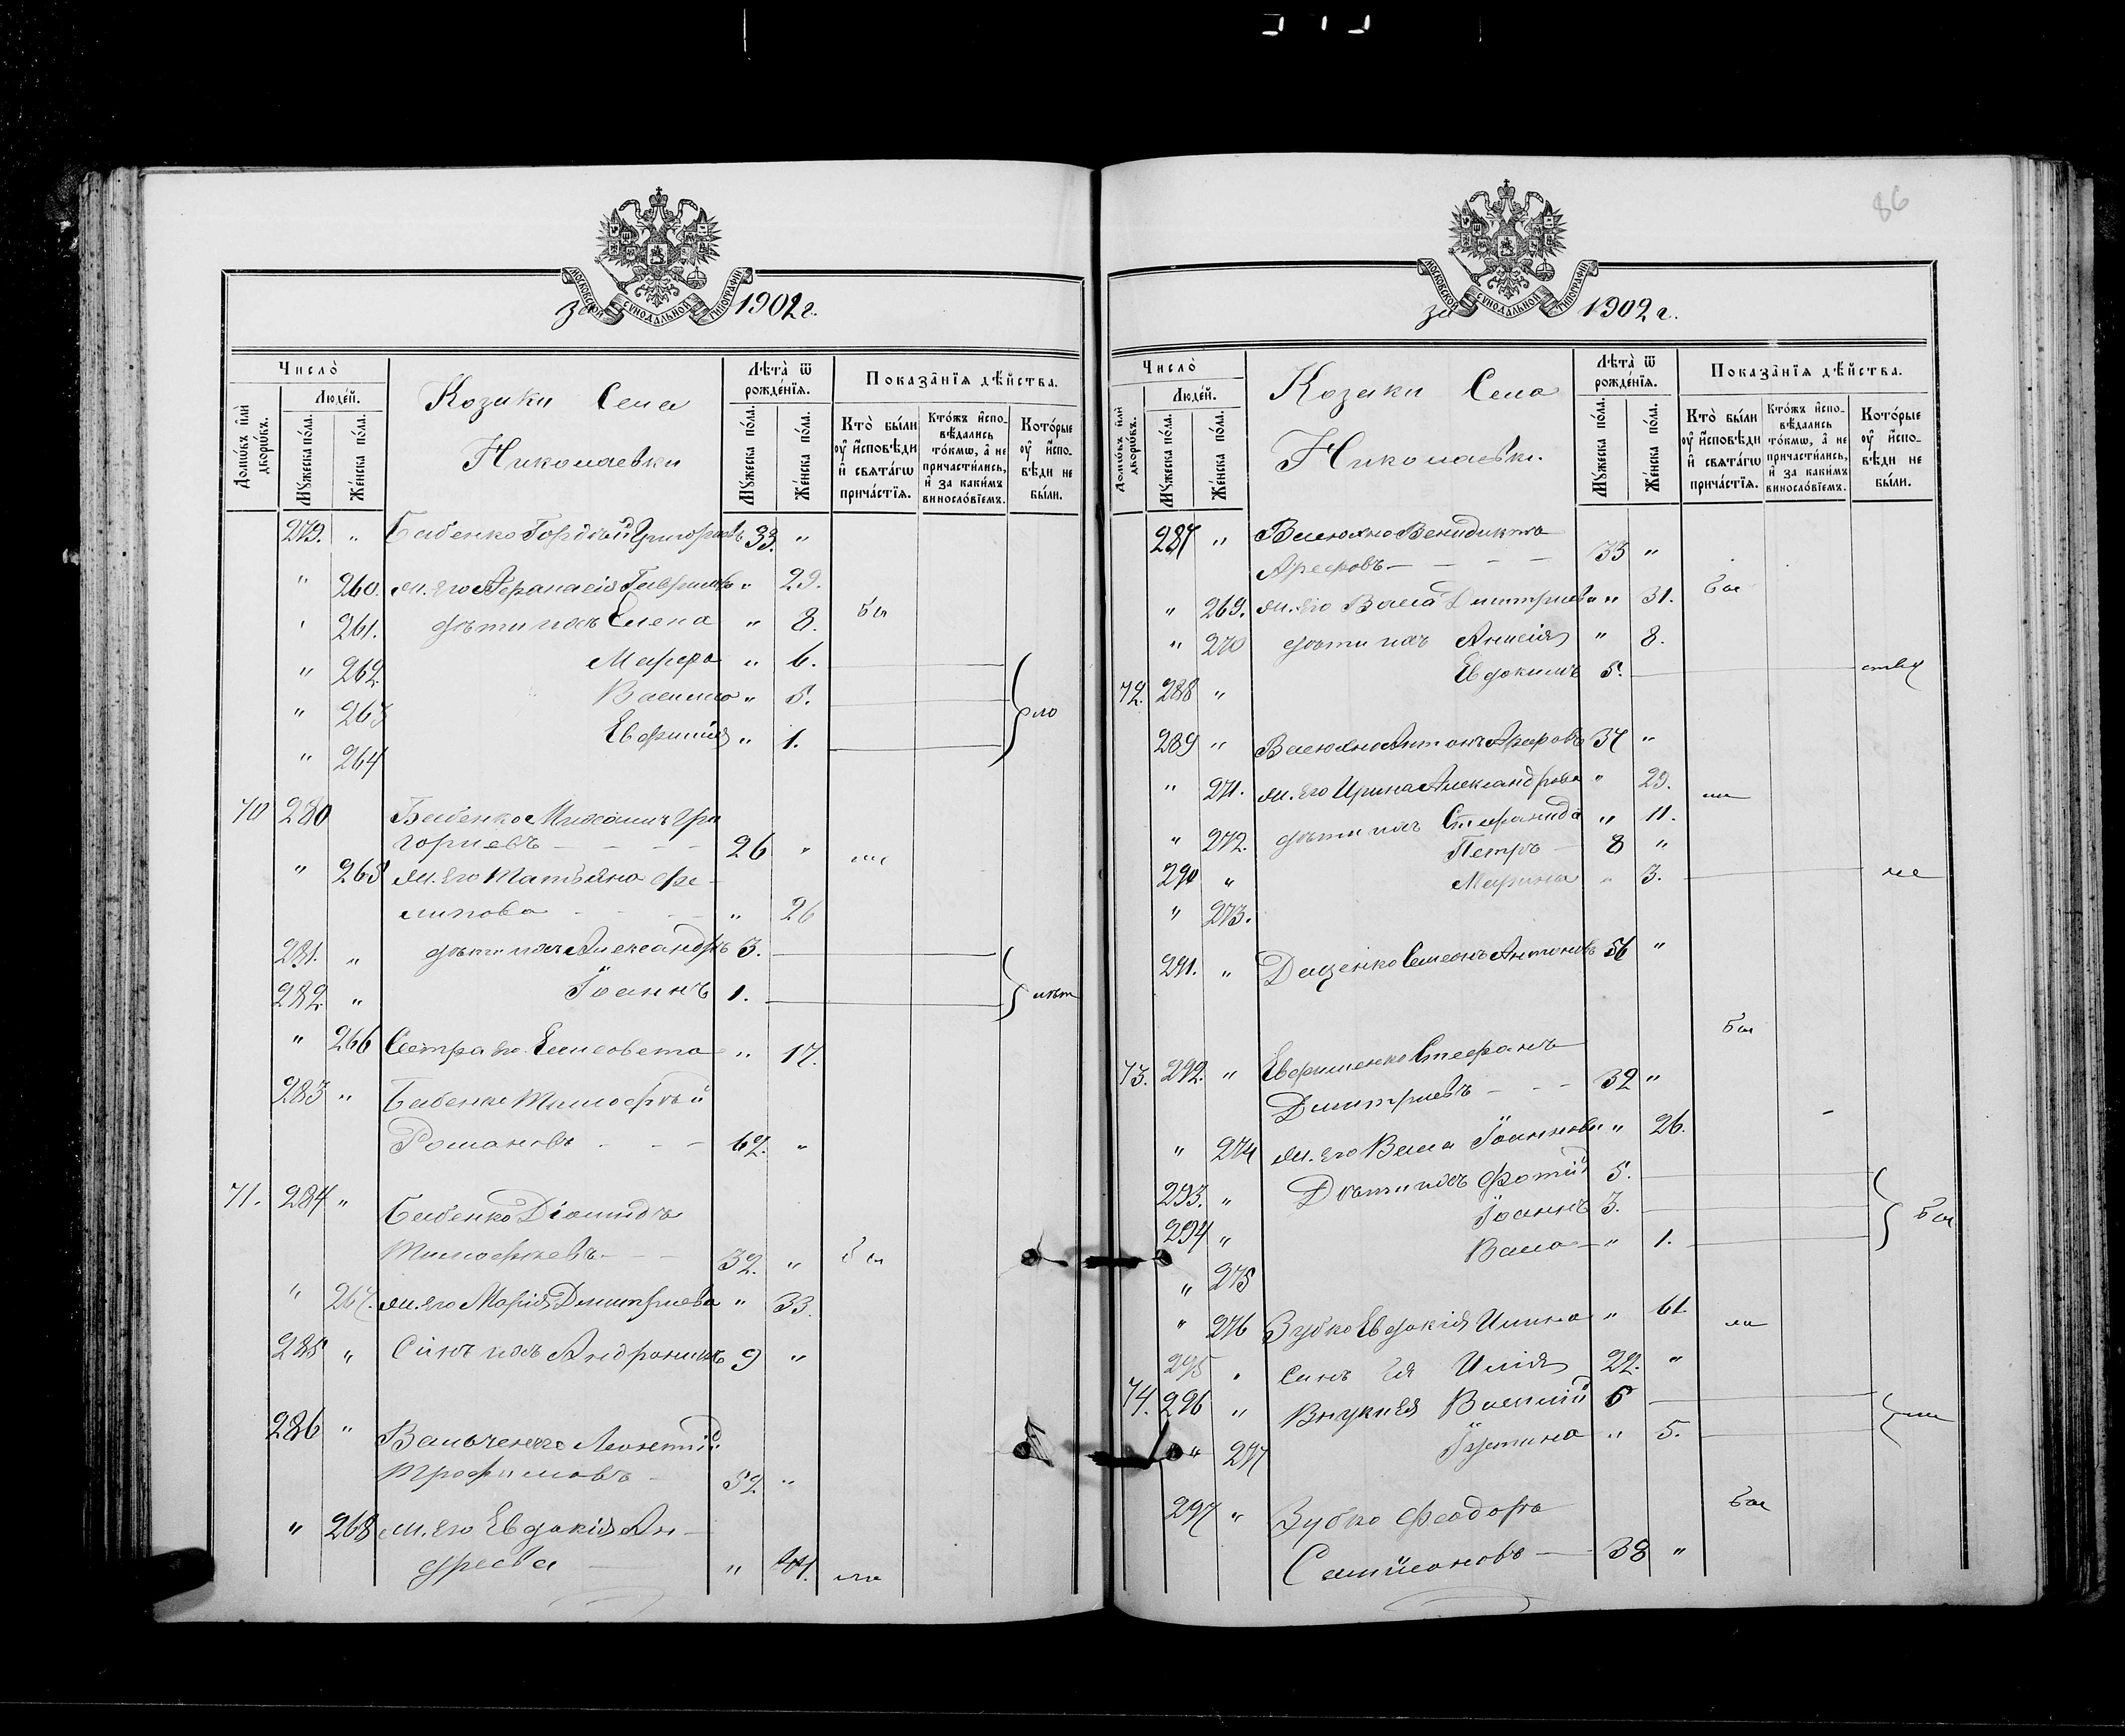 86
МОСКОВСКОЙ СѴНОДАЛЬНОЙ ТИПОГРАФІИ
за 1902 г.
Число̀
Людéй.
Домѡ́въ и҆лѝ дворѡ́въ.
Мꙋ́жеска по́ла.
Же́нска по́ла.
Козаки Села
Николаевки
Лѣ́та ѿ рожде́нїѧ.
Мꙋ́жеска по́ла.
Же́нска по́ла.
Показа̑нїѧ дѣ́йства.
Кто̀ бы́ли ᲂу҆ и҆́сповѣди и҆ свѧта́гѡ прича́стїѧ.
Кто́жъ и҆спо- вѣ́дались то́кмѡ, а҆ не причасти́лись, и҆ за каки́мъ винослѻ́вїемъ.
Кото́рые ᲂу҆ и҆́спо- вѣди не бы́ли.
279. " Бабенко Гордѣй Григорьевъ 33. "
" 260. ж. его Афанасія Гаврилова " 29.
" 261. дѣти ихъ Елена " 8. бы
" 262. Марфа " 6.
" 263 Василиса " 5.
" 264 Евфимія " 1.
70 280 Бабенко Михаилъ Гри
горіевъ - - - - 26 "
" 265 ж. его Татьяна Фи-
липова - - - " 26
281. " дѣти ихъ Александръ 3.
282. " Іоаннъ 1.
" 266 Сестра его Елисавета " 17.
283 " Бабенко Тимофѣй
Романовъ - - - 62. "
71. 284 " Бабенко Діомидъ
Тимофѣевъ - - 32. "
" 267. ж. его Марія Димитріева " 33.
285 " Сынъ ихъ Андроникъ 9 "
286 " Вальченко Леонтій
Трофимовъ - 52. "
" 268 ж. его Евдокія Ан-
дреева - " 44. ли
МОСКОВСКОЙ СѴНОДАЛЬНОЙ ТИПОГРАФІИ
за 1902 г.
Число̀
Людéй.
Домѡ́въ и҆лѝ дворѡ́въ.
Мꙋ́жеска по́ла.
Же́нска по́ла.
Козаки Села
Николаевки.
Лѣ́та ѿ рожде́нїѧ.
Мꙋ́жеска по́ла.
Же́нска по́ла.
Показа̑нїѧ дѣ́йства.
Кто̀ бы́ли ᲂу҆ и҆́сповѣди и҆ свѧта́гѡ прича́стїѧ.
Кто́жъ и҆спо- вѣ́дались то́кмѡ, а҆ не причасти́лись, и҆ за каки́мъ винослѻ́вїемъ.
Кото́рые ᲂу҆ и҆́спо- вѣди не бы́ли.
287 " Венидиктъ
Арефовъ - - - - 33 "
" 269. ж. его Васса Димитріева " 31. бы
" 270 дѣти ихъ Анисія " 8.
72. 288 " Евдокимъ 5.
289 " Антонъ Арефовъ 37 "
" 271. ж. его Ирина Александрова " 29. ли
" 272. дѣти ихъ Стефанида " 11.
290 " Петръ - 8 "
" 273. Марина " 3. ле
291. " Даценко Симеонъ Антоновъ 56 "
73. 292. " Евфименко Стефанъ бы
Димитріевъ - - - 32 "
" 274 ж. его Васса Іоаннова " 26.
293. " Дѣти ихъ Фотій 5.
294 " Іоаннъ 3.
" 275 Васса - " 1.
" 276 Зубко Евдокія Ильина " 61. ли
295 " Сынъ Ея Илія 22. "
74. 296 " Внуки Ея Василій 6
" 277 Іустина " 5.
297 " Зубко Феодоръ бы
Сампсоновъ - 38 "